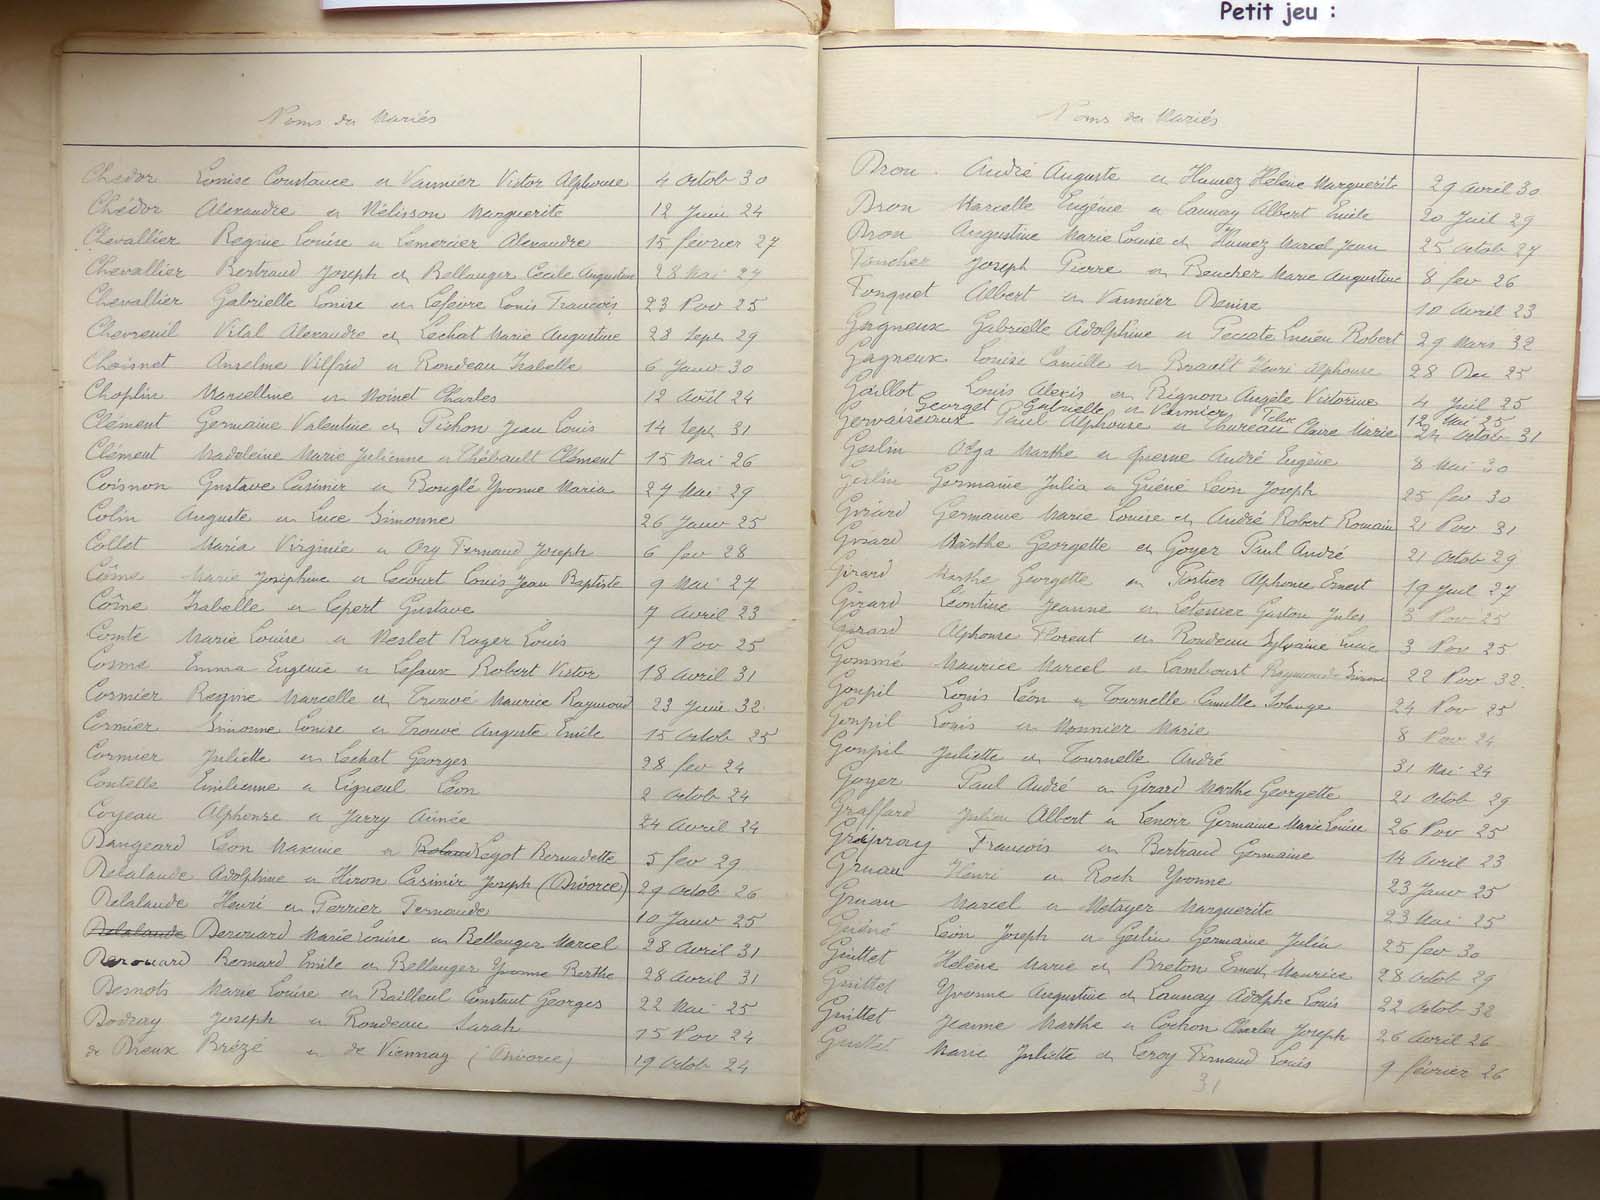 Petit jeu :
Noms des Mariés
Chédor Louise Constance et Vannier Victor Alphonse 4 Octob 30
Chédor Alexandre et Mélisson Marguerite 12 Juin 24
Chevallier Regine Louise et Lemercier Alexandre 15 février 27
Chevallier Bertrand Joseph et Bellanger Cécile Augustine 28 Mai 27
Chevallier Gabrielle Louise et Lefeivre Louis François 23 Nov 25
Chevreuil Vital Alexandre et Lechat Marie Augustine 28 Sept 29
Choisnet Anselme Vilfrid et Rondeau Isabelle 6 Janv 30
Choplin Marcelline et Moinet Charles 12 Août 24
Clément Germaine Valentine et Pichon Jean Louis 14 Sept 31
Clément Madeleine Marie Julienne et Thébault Clément 15 Mai 26
Coisnon Gustave Casimir et Bouglé Yvonne Maria 27 Mai 29
Colin Auguste et Luce Simonne 26 Janv 25
Collet Maria Virginie et Ory Fernand Joseph 6 fev 28
Côme Marie Joséphine et Lecourt Louis Jean Baptiste 9 Mai 27
Côme Isabelle et Lepert Gustave 7 Avril 23
Comte Marie Louise et Meslet Roger Louis 7 Nov 25
Cosme Emma Eugénie et Lefaux Robert Victor 18 Avril 31
Cormier Regine Marcelle et Trouvé Maurice Raymond 23 Juin 32
Cormier Simonne Louise et Trouvé Auguste Emile 15 Octob 25
Cormier Juliette et Lechat Georges 28 fev 24
Contelle Emilienne et Ligneul Léon 2 Octob 24
Coyeau Alphonse et Jarry Aimée 24 Avril 24
Dangeard Léon Maxime et Roland Legot Bernadette 5 fev 29
Delalande Adolphine et Hiron Casimir Joseph (Divorce) 29 Octob 26
Delalande Henri et Perrier Fernande 10 Janv 25
Delalande Derouard Marie Louise et Bellanger Marcel 28 Avril 31
Derouard Bernard Emile et Bellanger Yvonne Berthe 28 Avril 31
Desnots Marie Louise et Bailleul Constant Georges 22 Mai 25
Dodray Joseph et Rondeau Sarah 15 Nov 24
de Dreux Brézé et de Viennay (Divorce) 19 Octob 24
Noms des Mariés
Dron André Auguste et Hamez Hélène Marguerite 29 Avril 30
Dron Marcelle Eugénie et Launay Albert Emile 20 Juil 29
Dron Augustine Marie Louise et Hamez Marcel Jean 25 Octob 27
Foucher Joseph Pierre et Beucher Marie Augustine 8 fev 26
Fouquet Albert et Vannier Denise 10 Avril 23
Gagneux Gabrielle Adolphine et Peccate Lucien Robert 29 Mars 32
Gagneux Louise Camille et Brault Henri Alphonse 28 Dec 25
Gaillot Louis Alexis et Bignon Angèle Victorine 4 Juil 25
Georget Gabrielle et Vannier Felix 12 Mai 25
Gervaiseaux Paul Alphonse et Thureau Claire Marie 24 Octob 31
Geslin Olga Marthe et Quesne André Eugène 8 Mai 30
Geslin Germaine Julia et Guéné Léon Joseph 25 fev 30
Girard Germaine Marie Louise et André Robert Romain 21 Nov 31
Girard Marthe Georgette et Goyer Paul André 21 Octob 29
Girard Marthe Georgette et Portier Alphonse Ernest 19 Juil 27
Girard Léontine Jeanne et Letessier Gaston Jules 3 Nov 25
Girard Alphonse Florent et Rondeau Sylvaine Lucie 3 Nov 25
Gommé Maurice Marcel et Lamboust Raymonde Simone 22 Nov 32
Goupil Louis Léon et Tournelle Camille Solange 24 Nov 25
Goupil Louis et Monnier Marie 8 Nov 24
Goupil Juliette et Tournelle André 31 Mai 24
Goyer Paul André et Girard Marthe Georgette 21 Octob 29
Graffard Julien Albert et Lenoir Germaine Marie Louise 26 Nov 25
François et Bertrand Germaine 14 Avril 23
Gruau Henri et Roch Yvonne 23 Janv 25
Gruau Marcel et Métayer Marguerite 23 Mai 25
Guéné Léon Joseph et Geslin Germaine Julia 25 fev 30
Guittet Hélène Marie et Breton Ernest Maurice 28 Octob 29
Guittet Yvonne Augustine et Launay Adolphe Louis 22 Octob 32
Guittet Jeanne Marthe et Cochon Charles Joseph 26 Avril 26
Guittet Marie Juliette et Leroy Fernand Louis 9 février 26
31